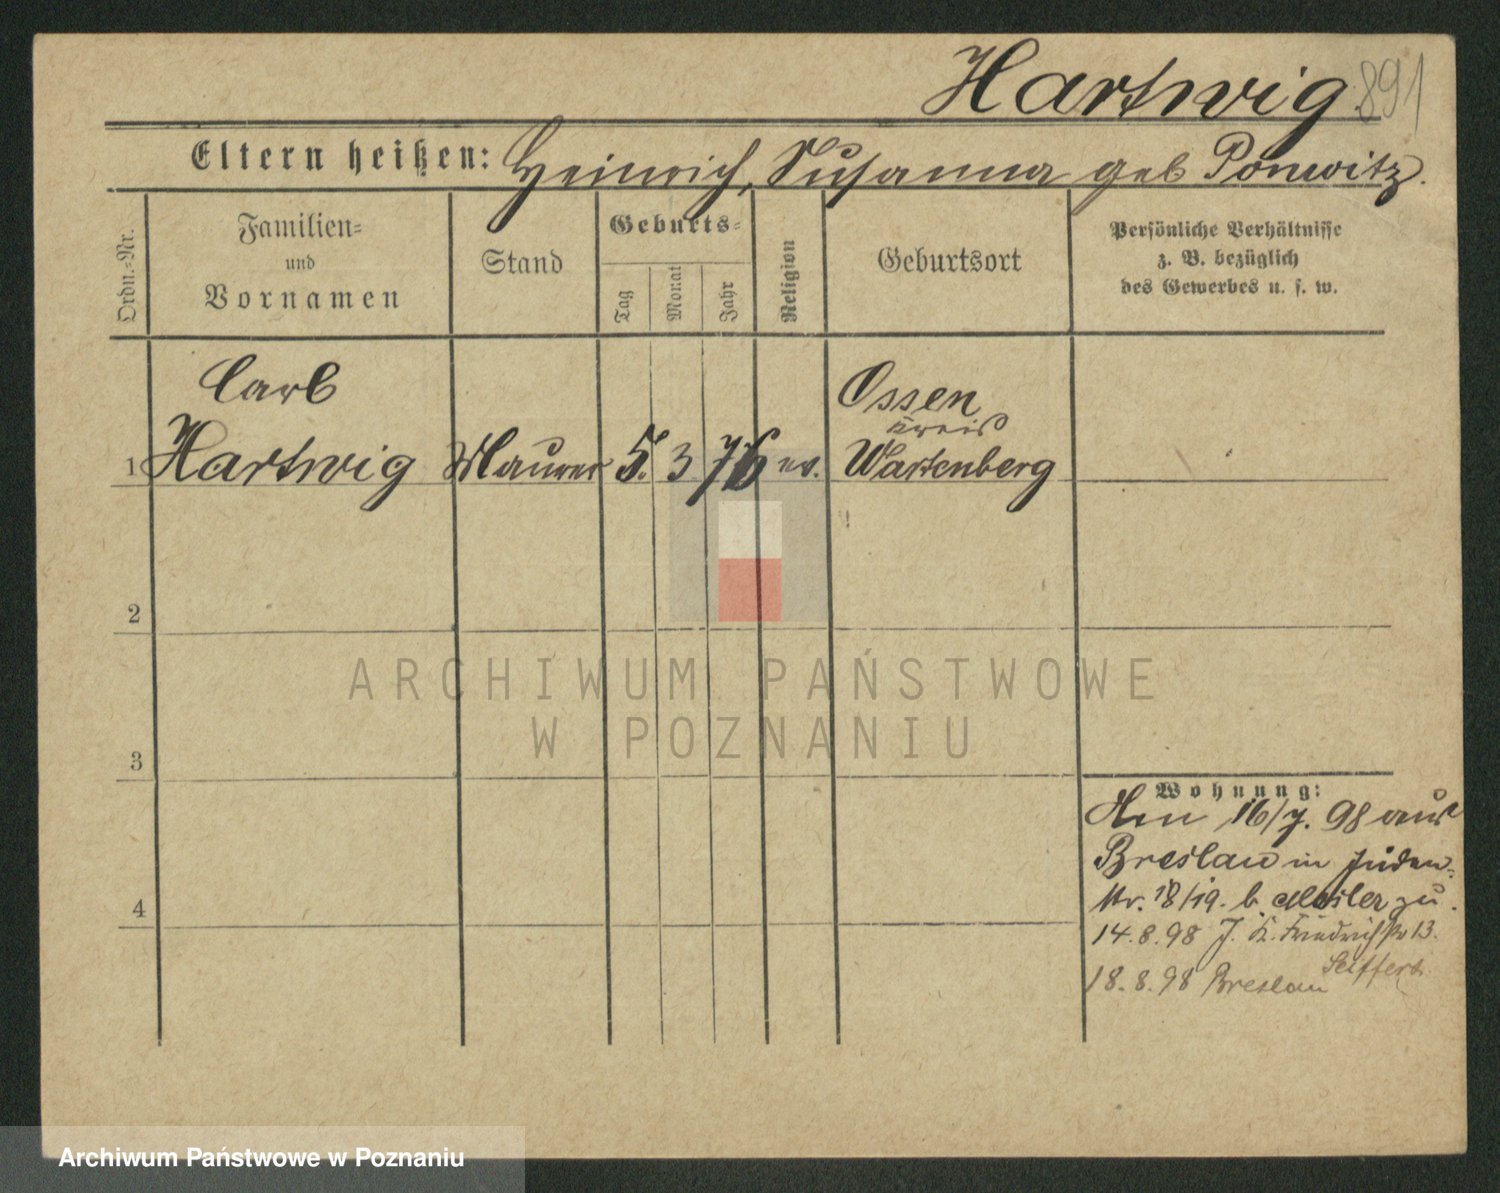 Hartwig
891
Eltern heißen: Heinrich, Susanna geb Ponwitz.
Ordn.-Nr.
Familien-
und
Vornamen
Stand
Geburts-
Tag
Monat
Jahr
Religion
Geburtsort
Persönliche Verhältnisse
z. B. bezüglich
des Gewerbes u. s. w.
Carl
1 Hartwig Maurer 5. 3 76 ev.
Ossen
Kreis
Wartenberg
2
3
4
ARCHIWUM PAŃSTWOWE
W POZNANIU
Wohnung:
Den 16/7. 98 aus
Breslau in Juden-
str. 18/19. b zu.
14.8.98 J. K. Friedrichstr 13.
Seiffert
18.8.98 Breslau
Archiwum Państwowe w Poznaniu